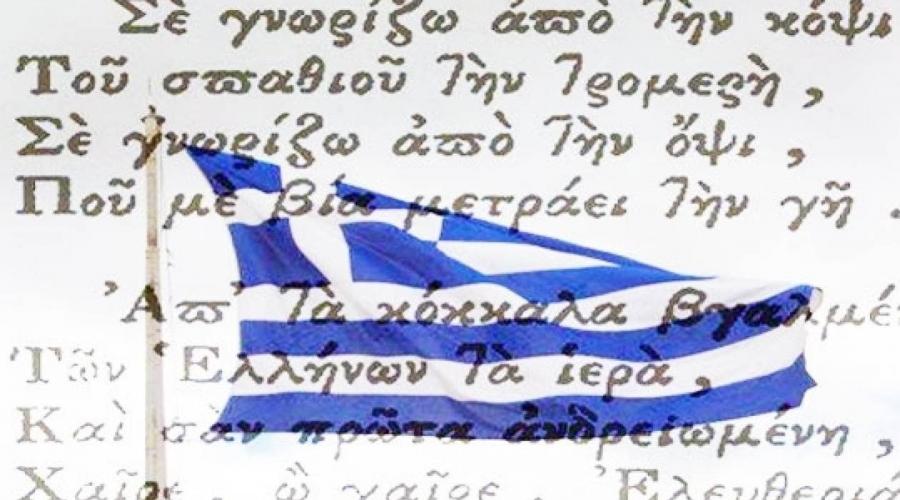 Σὲ γνωρίζω ἀϖὸ τὴν κόψι
Τοῦ σϖαθιοῦ τὴν τρομερὴ,
Σὲ γνωρίζω ἀϖὸ τὴν ὄψι,
Ποῦ μὲ βία μετράει τὴν γῆ.
Ἀϖ' τὰ κόκκαλα βγαλμέ
Τῶν Ἑλλήνων τὰ ἱερὰ,
Καὶ σὰν πρῶτα ἀνδρειωμένη,
Χαῖρε, ὢ χαῖρε, Ἐλευθεριά